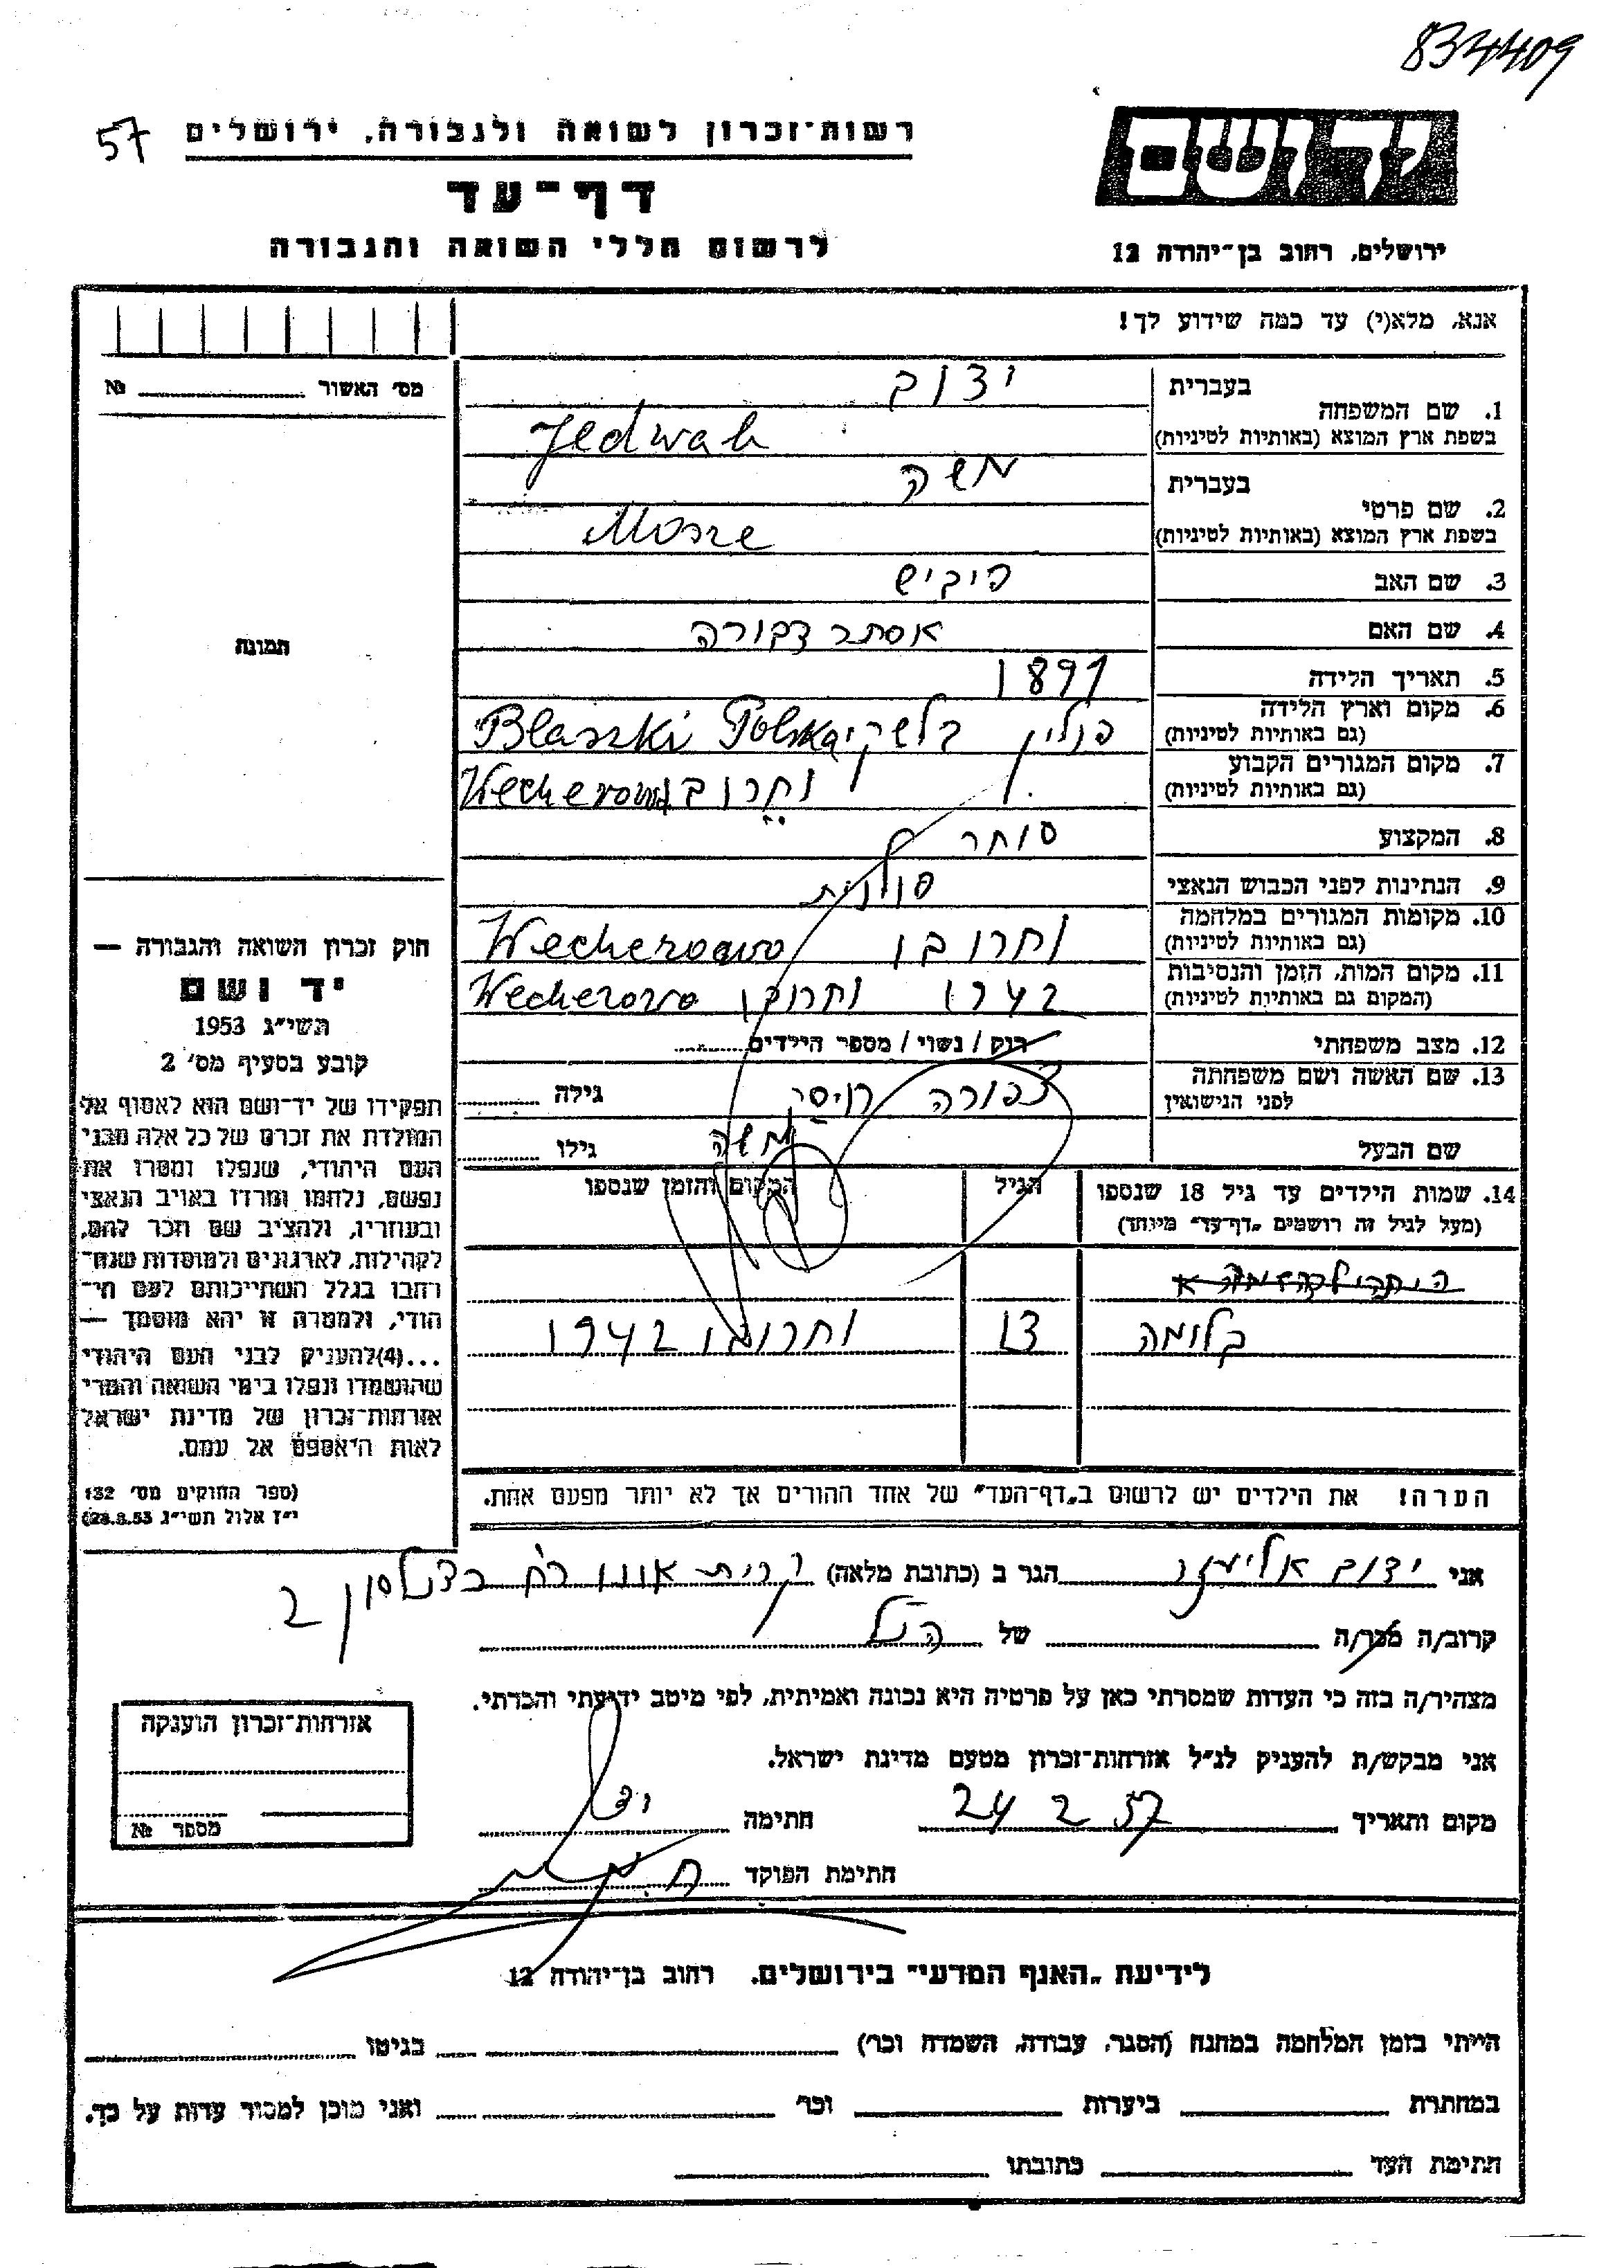 834409
57
רשות־זכרון לשואה ולגבורה, ירושלים
יד ושם
דף־עד
לרשום חללי השואה והגבורה
ירושלים, רחוב בן־יהודה 12
אנא, מלא(י) עד כמה שידוע לך!
מס׳ האשור №
תמונה
1. שם המשפחה בעברית ידוב
בשפת ארץ המוצא (באותיות לטיניות) Jedwab
2. שם פרטי בעברית משה
בשפת ארץ המוצא (באותיות לטיניות) Mosze
3. שם האב פיביש
4. שם האם אסתר דבורה
5. תאריך הלידה 1891
6. מקום וארץ הלידה (גם באותיות לטיניות) פולין בלשקי Blaszki Polska
7. מקום המגורים הקבוע (גם באותיות לטיניות) וחרובו
8. המקצוע סוחר
9. הנתינות לפני הכבוש הנאצי פולנית
10. מקומות המגורים במלחמה (גם באותיות לטיניות) וחרובו Wecherowo
11. מקום המות, הזמן והנסיבות (המקום גם באותיות לטיניות) 1942 וחרובו Wecherowo
12. מצב משפחתי רוק / נשוי / מספר הילדים
13. שם האשה ושם משפחתה לפני הנישואין צפורה גילה
שם הבעל משה גילו
14. שמות הילדים עד גיל 18 שנספו הגיל המקום והזמן שנספו
(מעל לגיל זה רושמים „דף־עד״ מיוחד)
בלומה 13 וחרובו 1942
הערה! את הילדים יש לרשום ב„דף־העד״ של אחד ההורים אך לא יותר מפעם אחת.
חוק זכרון השואה והגבורה —
יד ושם
תשי״ג 1953
קובע בסעיף מס׳ 2
תפקידו של יד־ושם הוא לאסוף אל
המולדת את זכרם של כל אלה מבני
העם היהודי, שנפלו ומסרו את
נפשם, נלחמו ומרדו באויב הנאצי
ובעוזריו, ולהציב שם וזכר להם,
לקהילות, לארגונים ולמוסדות שנח־
רבו בגלל השתייכותם לעם הי־
הודי, ולמטרה זו יהא מוסמך —
...(4)להעניק לבני העם היהודי
שהושמדו ונפלו בימי השואה והמרי
אזרחות־זכרון של מדינת ישראל
לאות היאספם אל עמם.
(ספר החוקים מס׳ 132
י״ז אלול תשי״ג 28.8.53)
אני ידוב אליעזר הגר ב (כתובת מלאה) קרית אונו רח׳ כצנלסון 2
קרוב/ה מכר/ה של הנ״ל
מצהיר/ה בזה כי העדות שמסרתי כאן על פרטיה היא נכונה ואמיתית, לפי מיטב ידיעתי והכרתי.
אני מבקש/ת להעניק לנ״ל אזרחות־זכרון מטעם מדינת ישראל.
מקום ותאריך 24 2 57 חתימה
חתימת הפוקד
אזרחות־זכרון הוענקה
מספר №
לידיעת „האגף המדעי״ בירושלים, רחוב בן־יהודה 12
הייתי בזמן המלחמה במחנה (הסגר, עבודה, השמדה וכר׳) בגיטו
במחתרת ביערות וכר׳ ואני מוכן למסור עדות על כך.
חתימת העד כתובתו